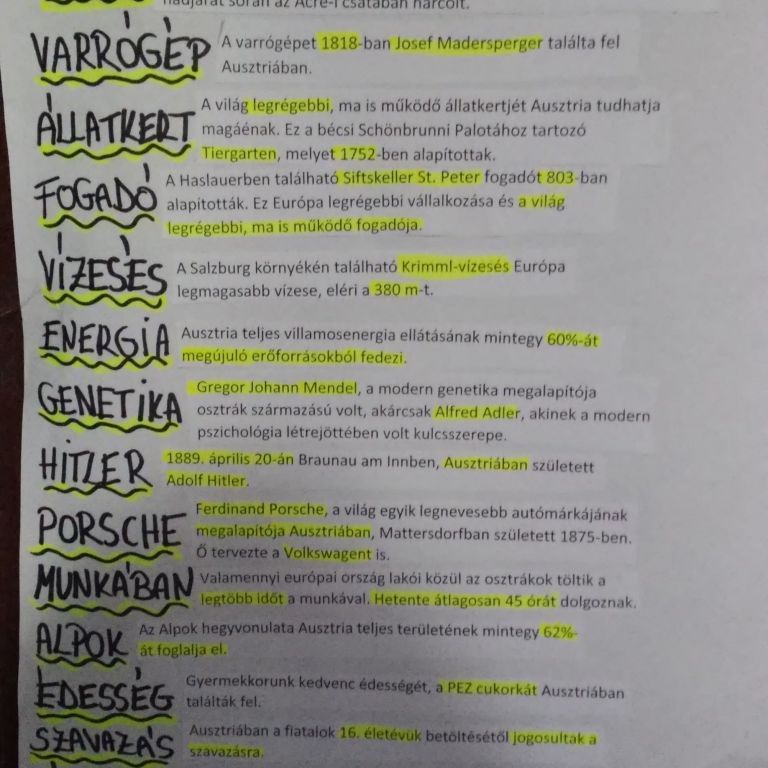 hadjárat során az Acre-i csatában harcolt.
VARRÓGÉP
A varrógépet 1818-ban Josef Madersperger találta fel
Ausztriában.
ÁLLATKERT
A világ legrégebbi, ma is működő állatkertjét Ausztria tudhatja
magáénak. Ez a bécsi Schönbrunni Palotához tartozó
Tiergarten, melyet 1752-ben alapítottak.
FOGADÓ
A Haslauerben található Siftskeller St. Peter fogadót 803-ban
alapították. Ez Európa legrégebbi vállalkozása és a világ
legrégebbi, ma is működő fogadója.
VÍZESÉS
A Salzburg környékén található Krimml-vízesés Európa
legmagasabb vízese, eléri a 380 m-t.
ENERGIA
Ausztria teljes villamosenergia ellátásának mintegy 60%-át
megújuló erőforrásokból fedezi.
GENETIKA
Gregor Johann Mendel, a modern genetika megalapítója
osztrák származású volt, akárcsak Alfred Adler, akinek a modern
pszichológia létrejöttében volt kulcsszerepe.
HITLER
1889. április 20-án Braunau am Innben, Ausztriában született
Adolf Hitler.
PORSCHE
Ferdinand Porsche, a világ egyik legnevesebb autómárkájának
megalapítója Ausztriában, Mattersdorfban született 1875-ben.
Ő tervezte a Volkswagent is.
MUNKÁBAN
Valamennyi európai ország lakói közül az osztrákok töltik a
legtöbb időt a munkával. Hetente átlagosan 45 órát dolgoznak.
ALPOK
Az Alpok hegyvonulata Ausztria teljes területének mintegy 62%-
át foglalja el.
ÉDESSÉG
Gyermekkorunk kedvenc édességét, a PEZ cukorkát Ausztriában
találták fel.
SZAVAZÁS
Ausztriában a fiatalok 16. életévük betöltésétől jogosultak a
szavazásra.